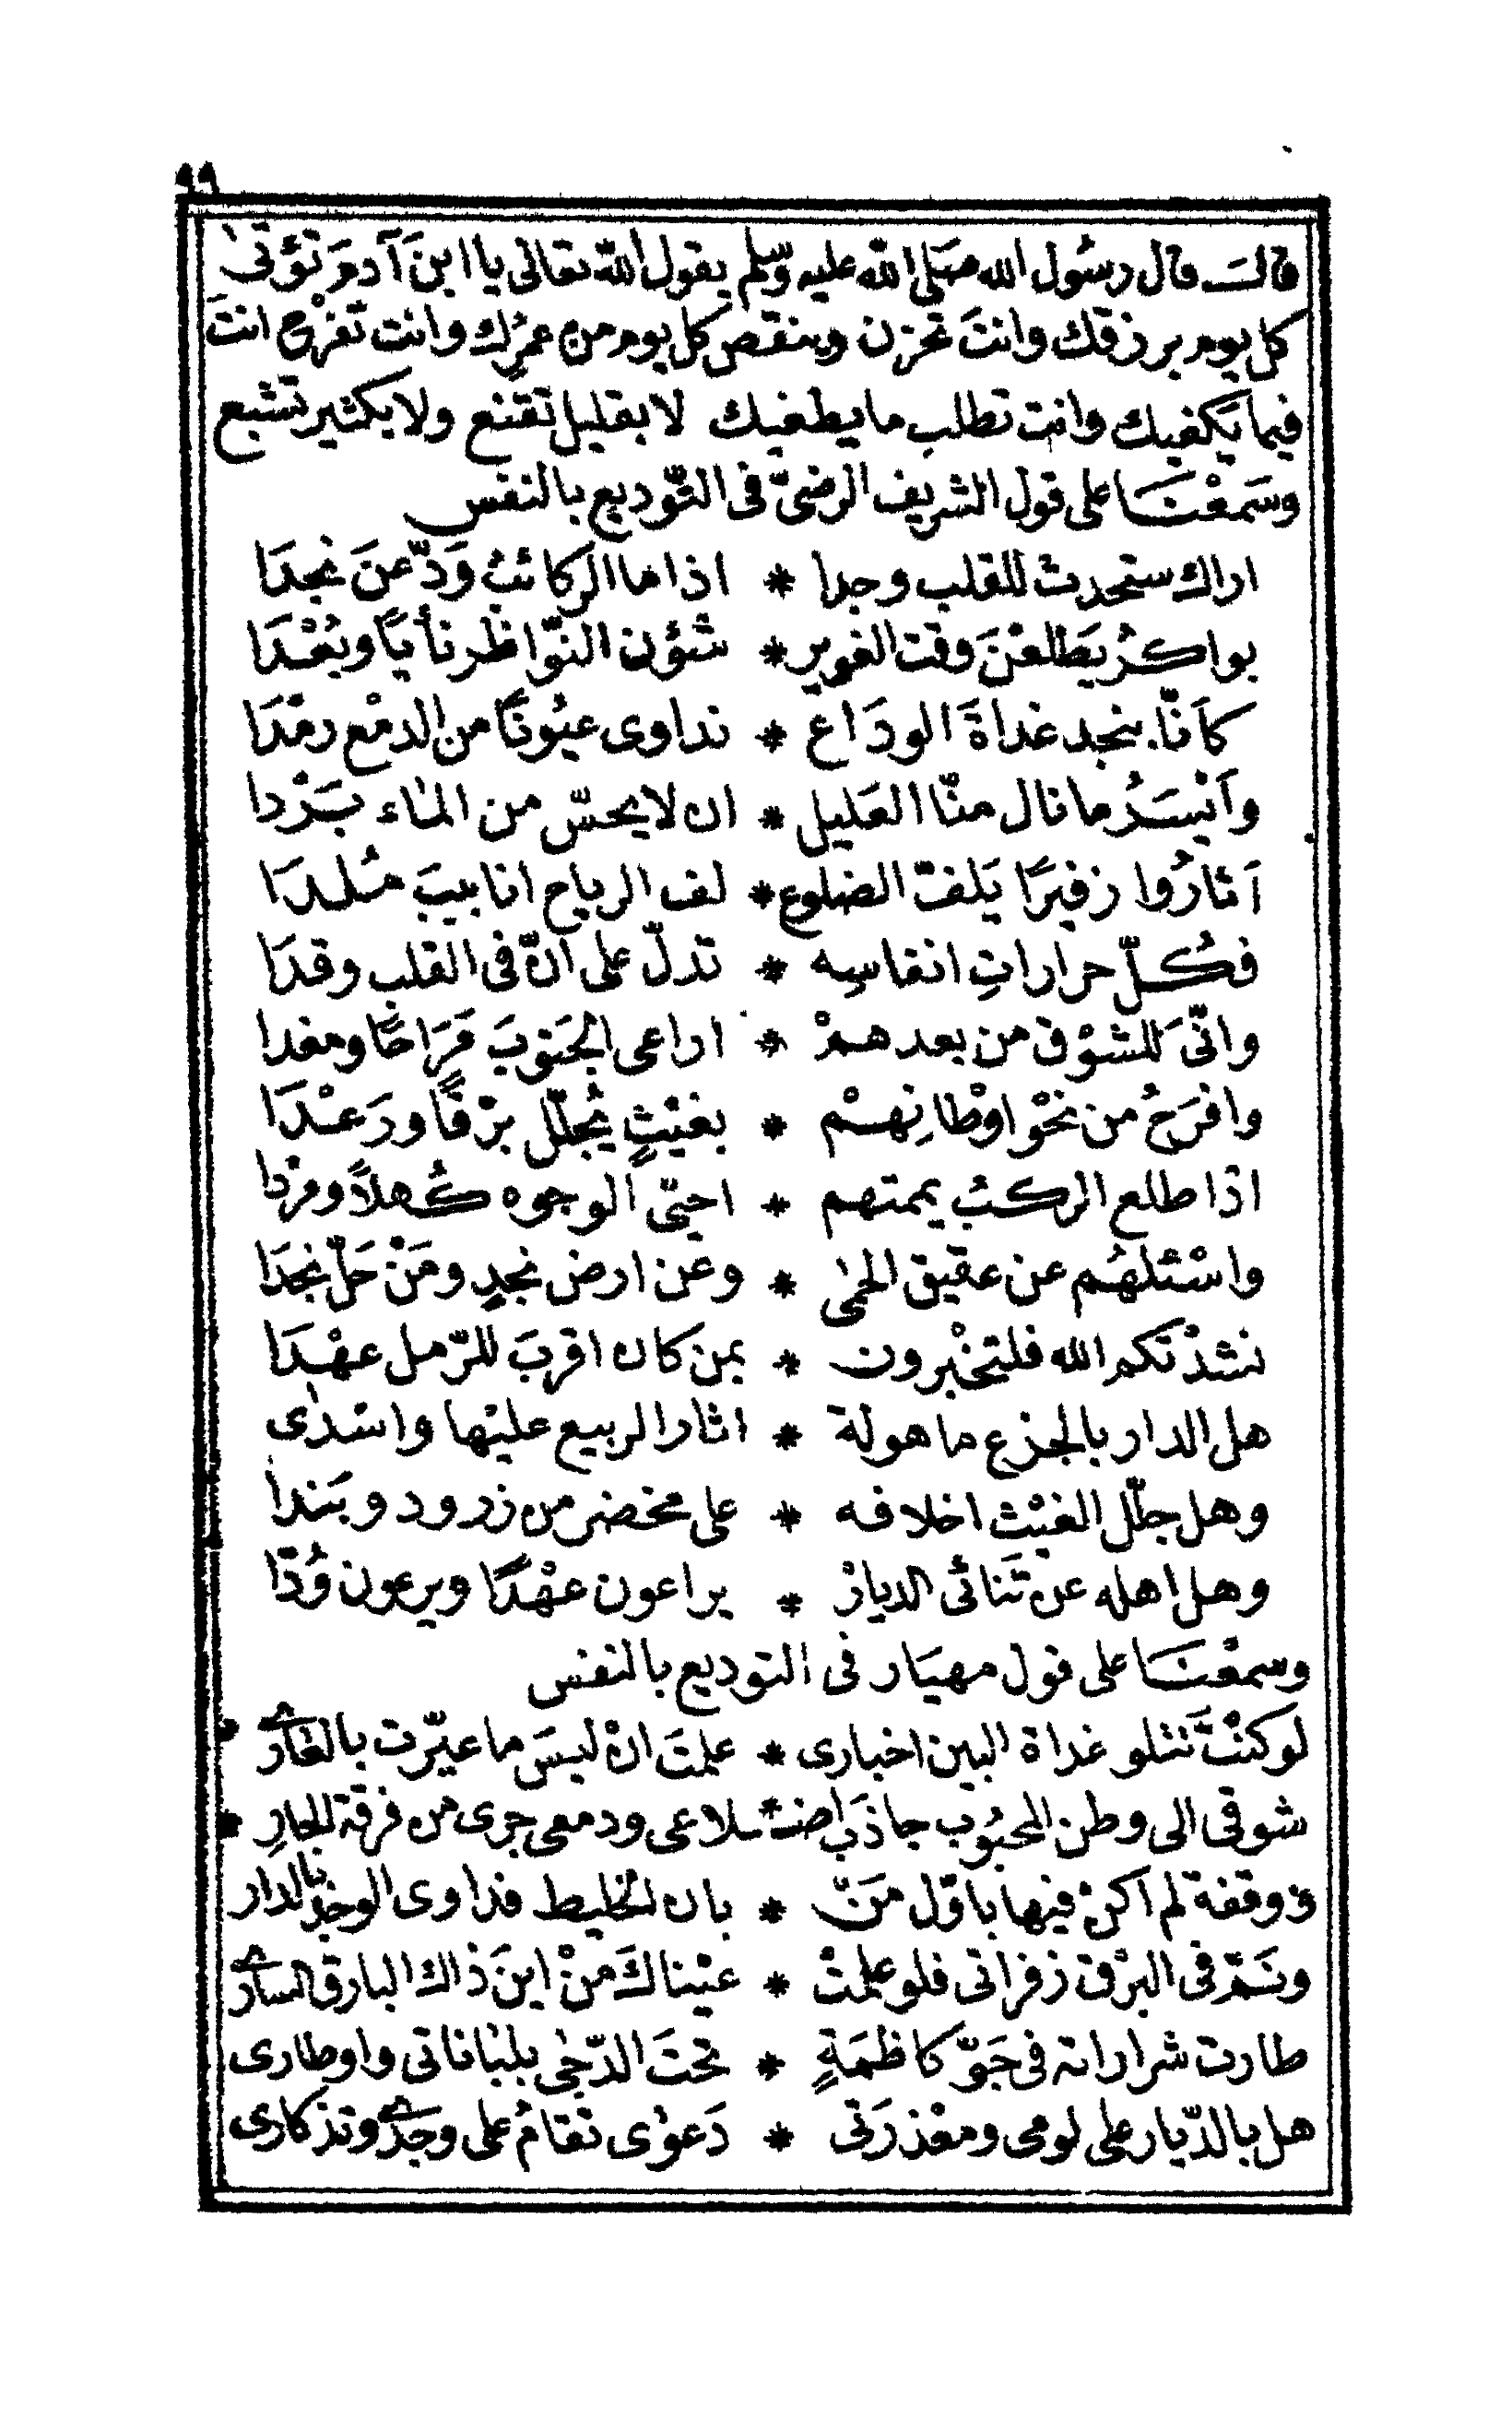 ٩٩
قالت قال رسُول الله صَلى الله عليه وسّلم يقول الله تعالى يا ابنَ آدمَ تؤتىٰ
كل يوم برزقك وانتَ تحزن وينقص كل يوم من عمُرك وانت تفرْح انتَ
فيما يَكفيك وانت تطلب ما يطغيك لا بقليل تقنع ولا بكثير تشبع
وسَمعْنَا على قول الشريف الرضىّ فى التّوديع بالنفس
اراك ستحدث للقلب وجدا * اذا ما الركائبُ وَدّعنَ نجدَا
بواكرُ يَطلعْنَ وقت الغوير * شؤن النّواظر نأيًا وبُعْدَا
كأنّا بنجد غداةَ الودَاع * نداوى عيُونًا من الدمْع رمْدَا
وأيْسَرُ ما نال منّا الغَليل * ان لا يحسّ من الماء بَرْدا
أثارُوا زفيرًا يَلفّ الضلوع * لف الرياح انابيبَ مُلدَا
فكُلّ حراراتِ انفاسِه * تدلّ على انّ فى القلب وقدَا
وانّىَ للشوْق من بعدهمْ * اراعى الجَنوبَ مَرَاحًا ومغدا
وافرَحُ من نحْو اوْطانِهمْ * بغيْثٍ يُجلّل برْقًا ورَعْدَا
اذا طلع الركبُ يممتهم * احيّى الوجوه كُهلاً ومرْدا
واسْئلهُم عن عقيق الحمىٰ * وعن ارض نجدٍ ومَنْ حَلّ نجدَا
نشدْتكم الله فلتخْبرون * بمن كان اقربَ للرّمل عهْدَا
هل الدار بالجزع ماهولة * اثار الربيع عليْها واسْدىٰ
وهل جلّل الغيْث اخلافه * على مخضر من زرود وبَندا
وهل اهله عن تَنائى الديارْ * يراعون عهْدًا ويرعون وُدّا
وسمعْنَا على قول مهيَار فى التوديع بالنفس
لو كنْتَ تتلو غداة البين اخبارى * علمتَ انْ ليسَ ما عيّرت بالعَارِى
شوقى الى وطن المحبُوب جاذَب اضـ * ـلاعى ودمعى جرى من فرقة الجارِ
ووقفة لم اكنْ فيها باوّل مَنْ * بان الخليط فداوى الوجْدَ بالدار
ونَمّ فى البرْق زفراتى فلو علمتْ * عيْناكَ منْ اينَ ذاك البارق السارِى
طارت شراراته فى جَوّ كاظمَةٍ * تحتَ الدّجىٰ بلباناتى واوطارى
هل بالدّيار على لومى ومعْذرَتى * دَعوٰى تقامُ على وجَدِى وتذكارى